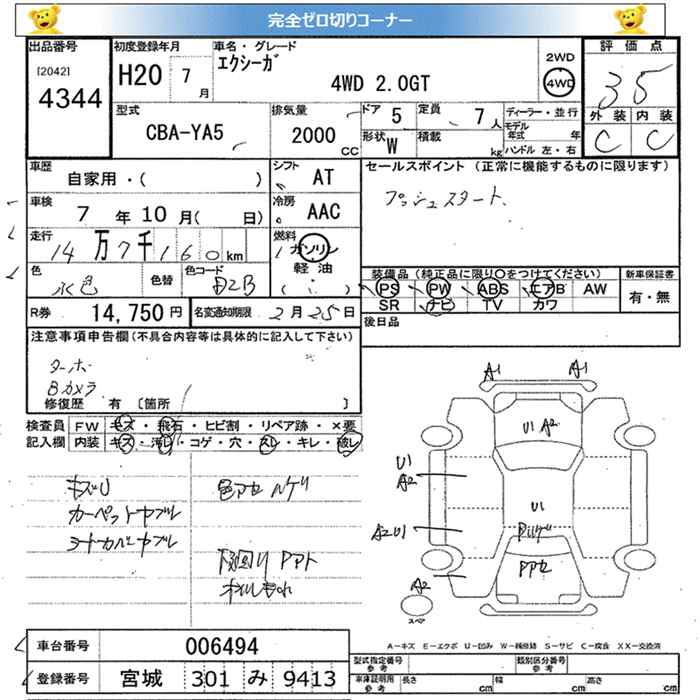 完全ゼロ切りコーナー
出品番号 初度登録年月 車名・グレード 評価点
[2042] エクシーガ 2WD
4344 H20 7月 4WD 2.0GT 4WD 35
型式 排気量 ドア 5 定員 7人 ディーラー・並行 外装 内装
CBA-YA5 2000CC 形状 W 積載 kg モデル年式 年 C C
ハンドル 左・右
車歴 シフト セールスポイント (正常に機能するものに限ります)
自家用・( ) AT プッシュスタート
車検 7年10月( 日) 冷房 AAC
走行 14万7千160km 燃料 ガソリン
軽油
( )
色 水色 色替 色コード D2B 装備品(純正品に限り〇をつけてください) 新車保証書
PS PW ABS エアB AW 有・無
SR ナビ TV カワ
R券 14,750円 名変通知期限 2月25日 後日品
注意事項申告欄(不具合内容等は具体的に記入して下さい)
ターボ
Bカメラ
修復歴 有 [箇所 ]
検査員 FW キズ・飛石・ヒビ割・リペア跡・×要
記入欄 内装 キズ・汚レ・コゲ・穴・スレ・キレ・破レ
キズU 色アセ
カーペットヤブレ
シートカバーヤブレ
下回り
A1 A1
U1 A2
U1
A2
U1
A2U1
A2
スペア
A－キズ E－エクボ U－凹み W－補修跡 S－サビ C－腐食 XX－交換済
車台番号 006494
型式指定番号 参考 類別区分番号 参考
登録番号 宮城 301 み 9413
車庫証明用 参考 長さ cm 幅 cm 高さ cm